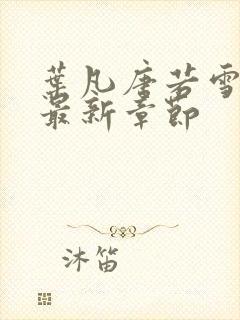 葉凡唐若雪
最新章節
沐笛